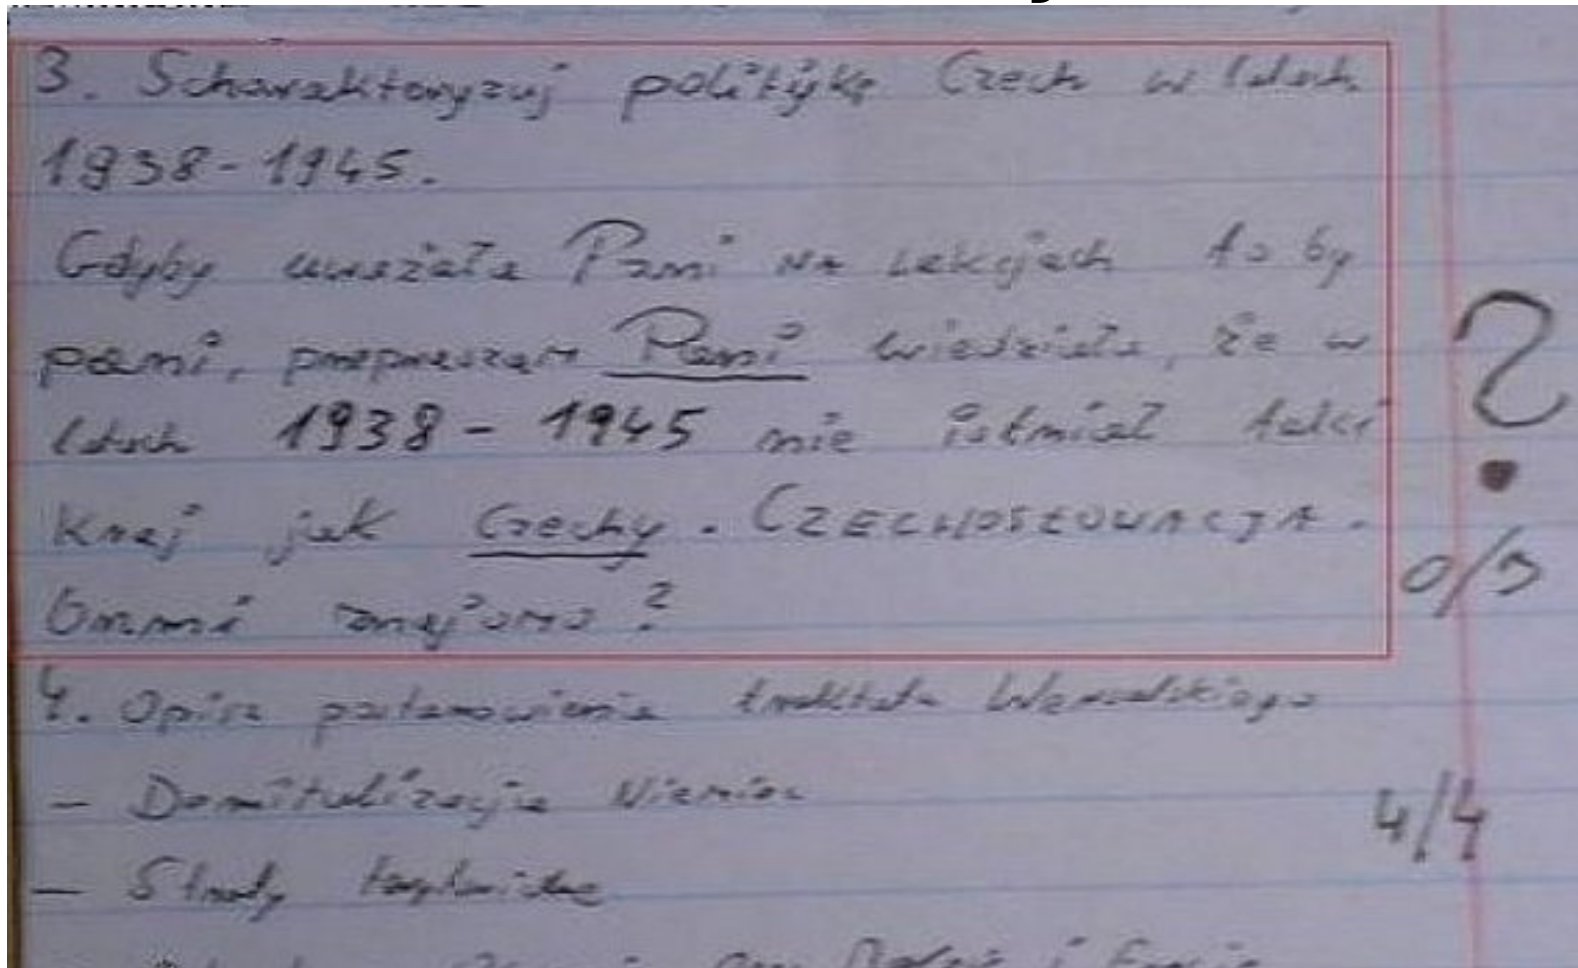 3. Scharakteryzuj politykę Czech w latach
1938-1945.
Gdyby uważała Pani na lekcjach to by
pani, przepraszam Pani wiedziała, że w
latach 1938 - 1945 nie istniał taki
kraj jak Czechy. CZECHOSŁOWACJA.
brzmi znajomo?
?
0/3
4. Opisz postanowienia traktatu Wersalskiego
- Demilitalizacja Niemiec
4/4
- Straty
i